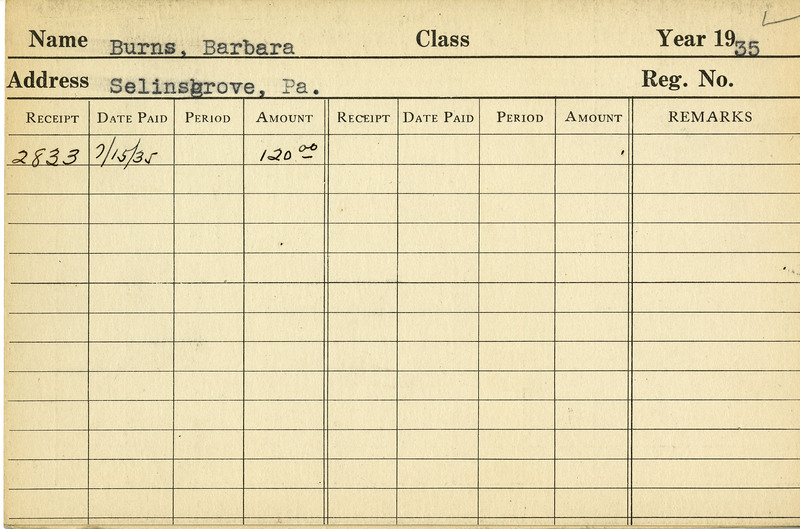 Name Burns, Barbara Class Year 1935
Address Selinsgrove, Pa. Reg. No.
RECEIPT DATE PAID PERIOD AMOUNT RECEIPT DATE PAID PERIOD AMOUNT REMARKS
2833 7/15/35 120 00